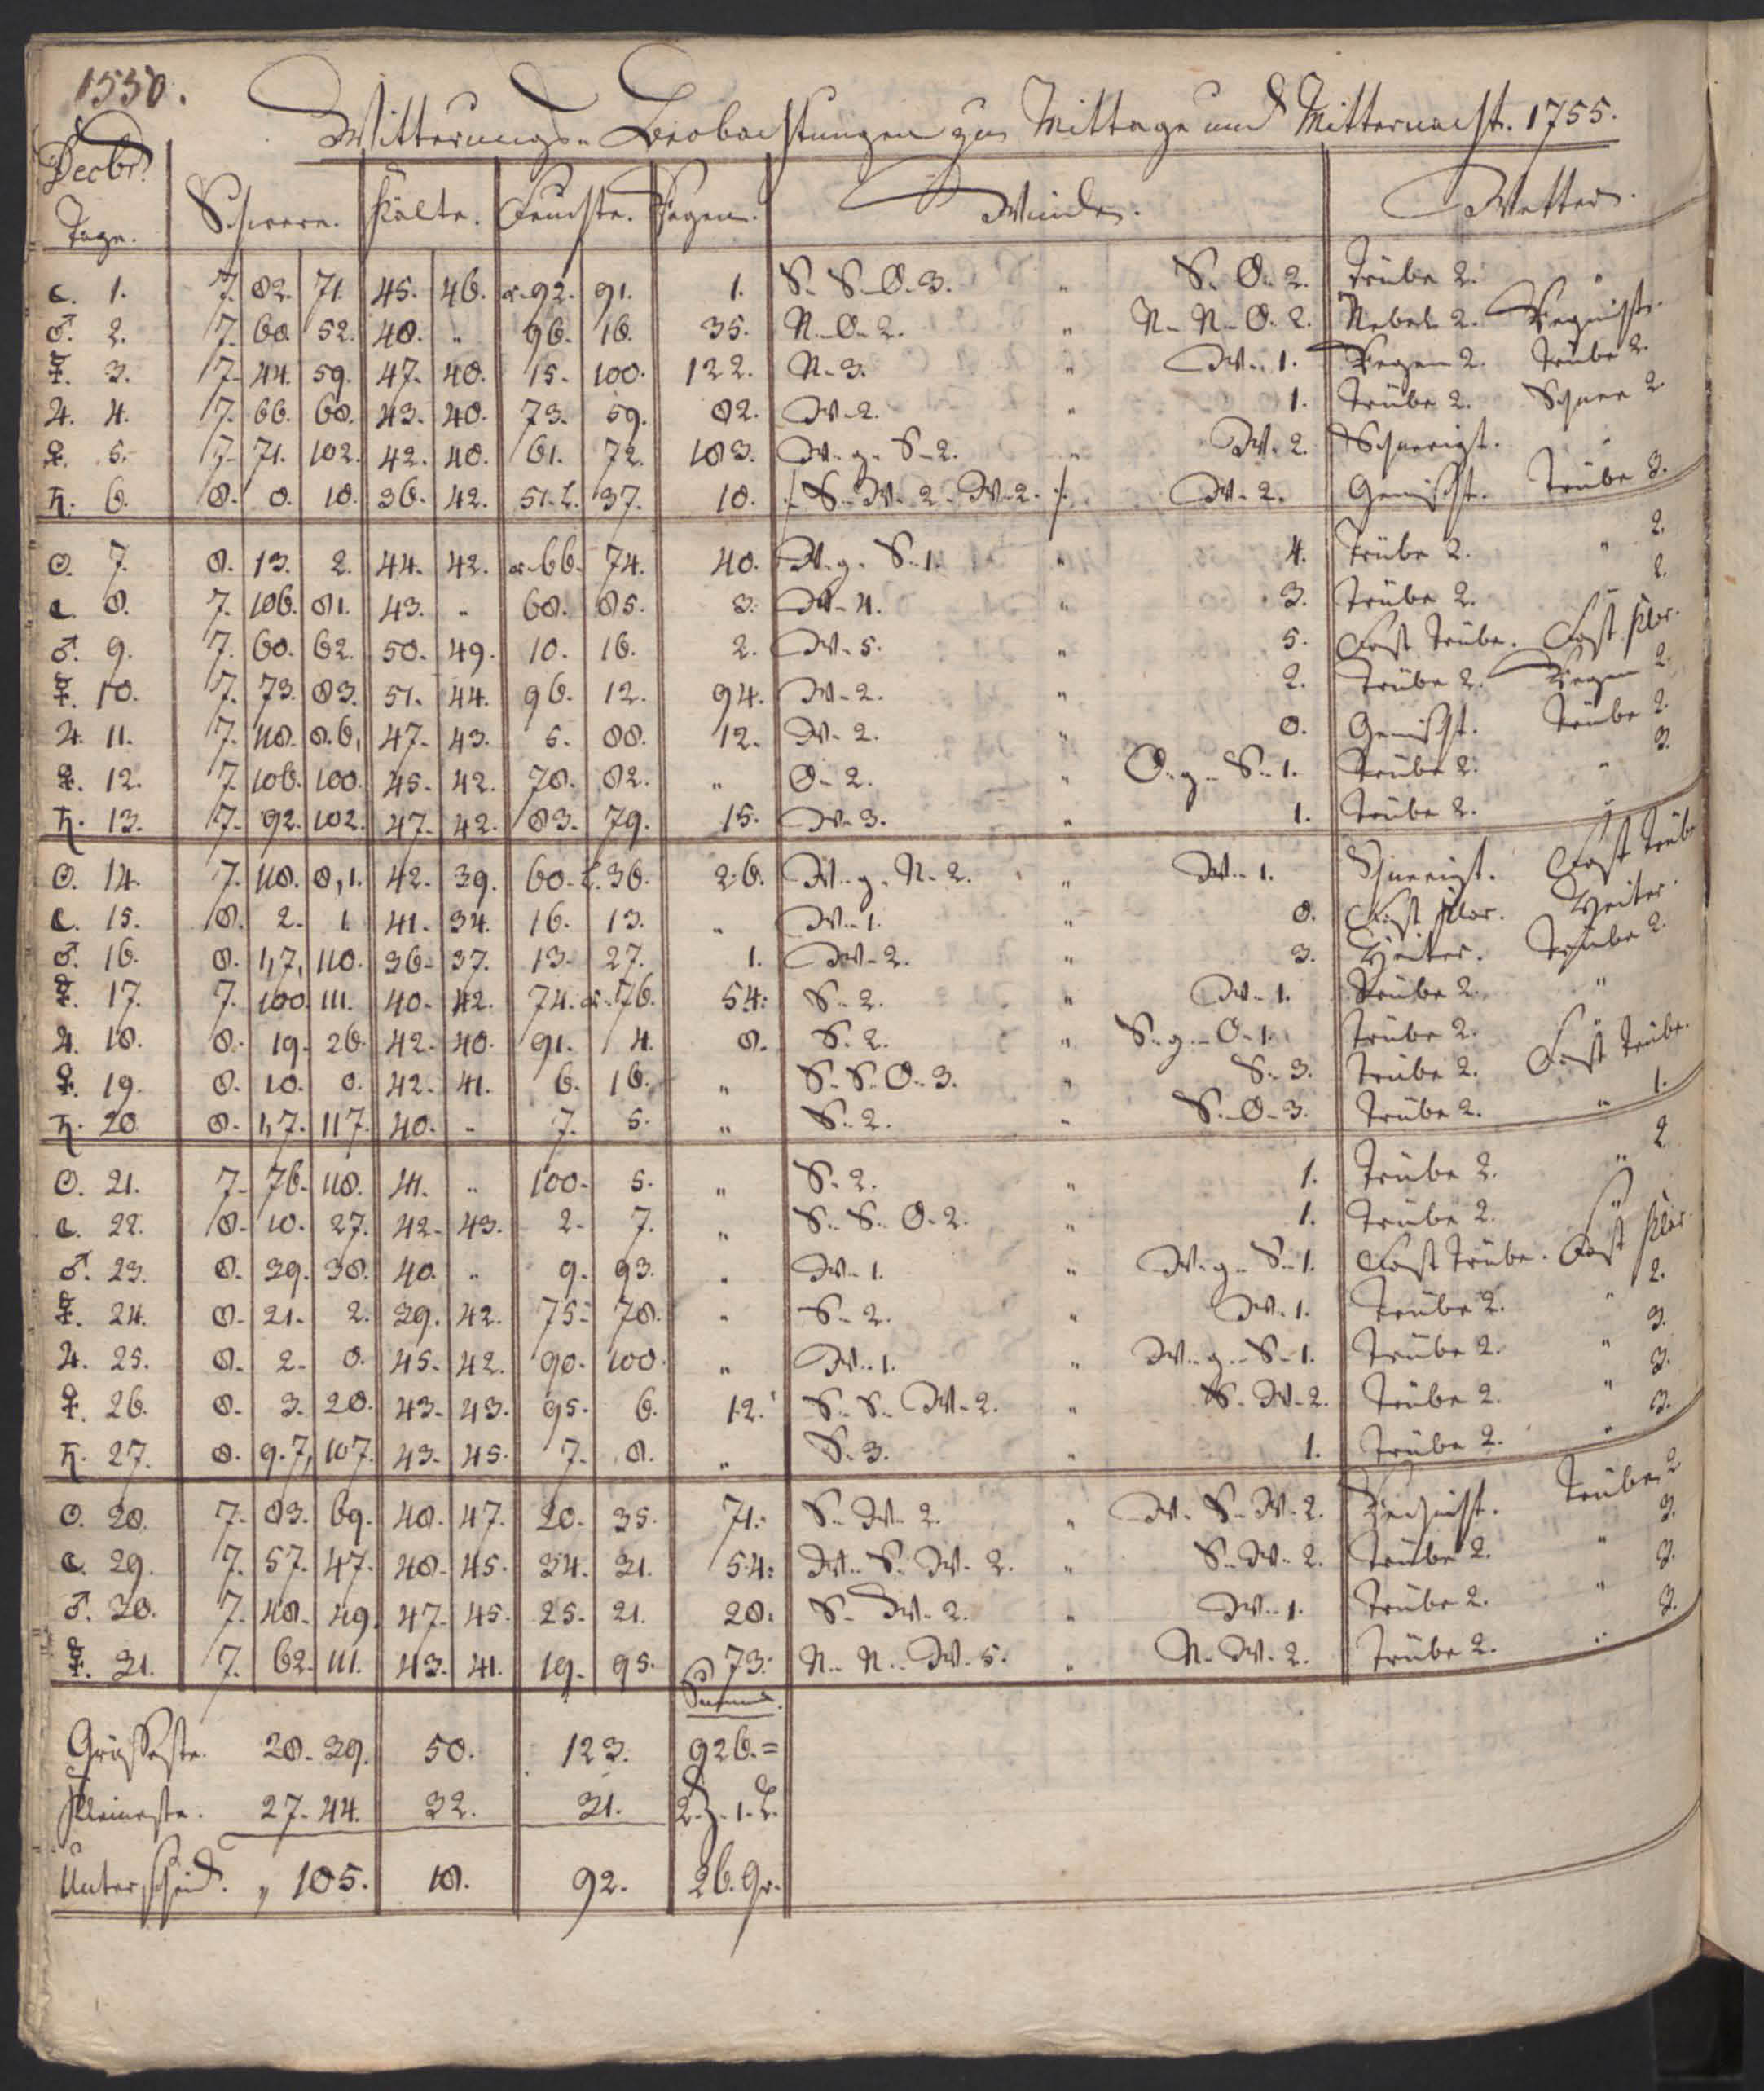 1550.
Witterungs-Beobachtungen zu Mittage und Mitternacht. 1755.
Decbr.
Tage. Schwere. Kälte. Feuchte. Regen. Winde. Wetter.
☾. 1. 7. 82. 71. 45. 46. 92. 91. 1. S. S. O. 3. " S. O. 2. Trübe 2. "
♂. 2. 7. 60. 52. 48. " 96. 16. 35. N. O. 2. " N. N. O. 2. Nebel 2. Regnicht.
☿. 3. 7. 44. 59. 47. 40. 15. 100. 122. N. 3. " W. 1. Regen 2. Trübe 2.
♃. 4. 7. 66. 68. 43. 40. 73. 59. 82. W. 2. " 1. Trübe 2. Schnee 2.
♀. 5. 7. 71. 102. 42. 40. 61. 72. 103. W. g. S. 2. " W. 2. Schneeigt. "
♄. 6. 8. 0. 10. 36. 42. 51. 37. 10. S. W. 2. W. 2. W. 2. Gemischt. Trübe 3.
☉. 7. 8. 13. 2. 44. 42. 66. 74. 40. W. g. S. 1. " 4. Trübe 2. " 2.
☾. 8. 7. 106. 81. 43. " 68. 85. 3. W. 4. " 3. Trübe 2. " 2.
♂. 9. 7. 60. 62. 50. 49. 10. 16. 2. W. 5. " 5. Fast Trübe. Fast klar.
☿. 10. 7. 73. 83. 51. 44. 96. 12. 94. W. 2. " 2. Trübe 2. Regen 2.
♃. 11. 7. 118. 8.6, 47. 43. 5. 88. 12. W. 2. " 0. Gemischt. Trübe 2.
♀. 12. 7. 106. 100. 45. 42. 78. 82. " O. 2. " O. g. S. 1. Trübe 2. " 3.
♄. 13. 7. 92. 102. 47. 42. 83. 79. 15. W. 3. " 1. Trübe 2. "
☉. 14. 7. 118. 8,1. 42. 39. 60. 36. 26. W. g. N. 2. " W. 1. Schneeigt. Fast Trübe
☾. 15. 8. 2. 1. 41. 34. 16. 13. " W. 1. " 0. Fast klar. Heiter.
♂. 16. 8. 1,7, 110. 36. 37. 13. 27. 1. W. 2. " 3. Heiter. Trübe 2.
☿. 17. 7. 100. 111. 40. 42. 74. 76. 54. S. 2. " W. 1. Trübe 2. "
♃. 18. 8. 19. 26. 42. 40. 91. 4. 8. S. 2. " S. g. O. 1. Trübe 2. "
♀. 19. 8. 10. 0. 42. 41. 6. 16. " S. S. O. 3. " S. 3. Trübe 2. Fast Trübe.
♄. 20. 8. 1,7. 117. 40. " 7. 5. " S. 2. " S. O. 3. Trübe 2. " 1.
☉. 21. 7. 76. 118. 41. " 100. 5. " S. 2. " 1. Trübe 2. " 2
☾. 22. 8. 10. 27. 42. 43. 2. 7. " S. S. O. 2. " 1. Trübe 2. "
♂. 23. 8. 39. 38. 40. " 9. 93. " W. 1. " W. g. S. 1. Fast Trübe. Fast klar.
☿. 24. 8. 21. 2. 39. 42. 75. 78. " S. 2. " W. 1. Trübe 2. " 2.
♃. 25. 8. 2. 0. 45. 42. 90. 100. " W. 1. " W. g. S. 1. Trübe 2. " 3.
♀. 26. 8. 3. 20. 43. 43. 95. 6. 12. S. S. W. 2. " S. W. 2. Trübe 2. " 3.
♄. 27. 8. 9.7, 107. 43. 45. 7. 8. " S. 3. " 1. Trübe 2. " 3.
☉. 28. 7. 83. 69. 48. 47. 20. 35. 71. S. W. 2. " W. S. W. 2. Trübe 2
☾. 29. 7. 57. 47. 48. 45. 34. 31. 54. W. S. W. 2. " S. W. 2. Trübe 2. " 3.
♂. 30. 7. 48. 49. 47. 45. 25. 21. 28. S. W. 2. " W. 1. Trübe 2. " 3.
☿. 31. 7. 62. 111. 43. 41. 19. 95. 73. N. N. W. 5. " N. W. 2. Trübe 2. " 3.
Summa.
Grösseste. 28. 39. 50. 123. 926.=
Kleineste. 27. 44. 32. 31. 2. Z. 1. L.
Unterscheid. " 105. 18. 92. 26. Gr.